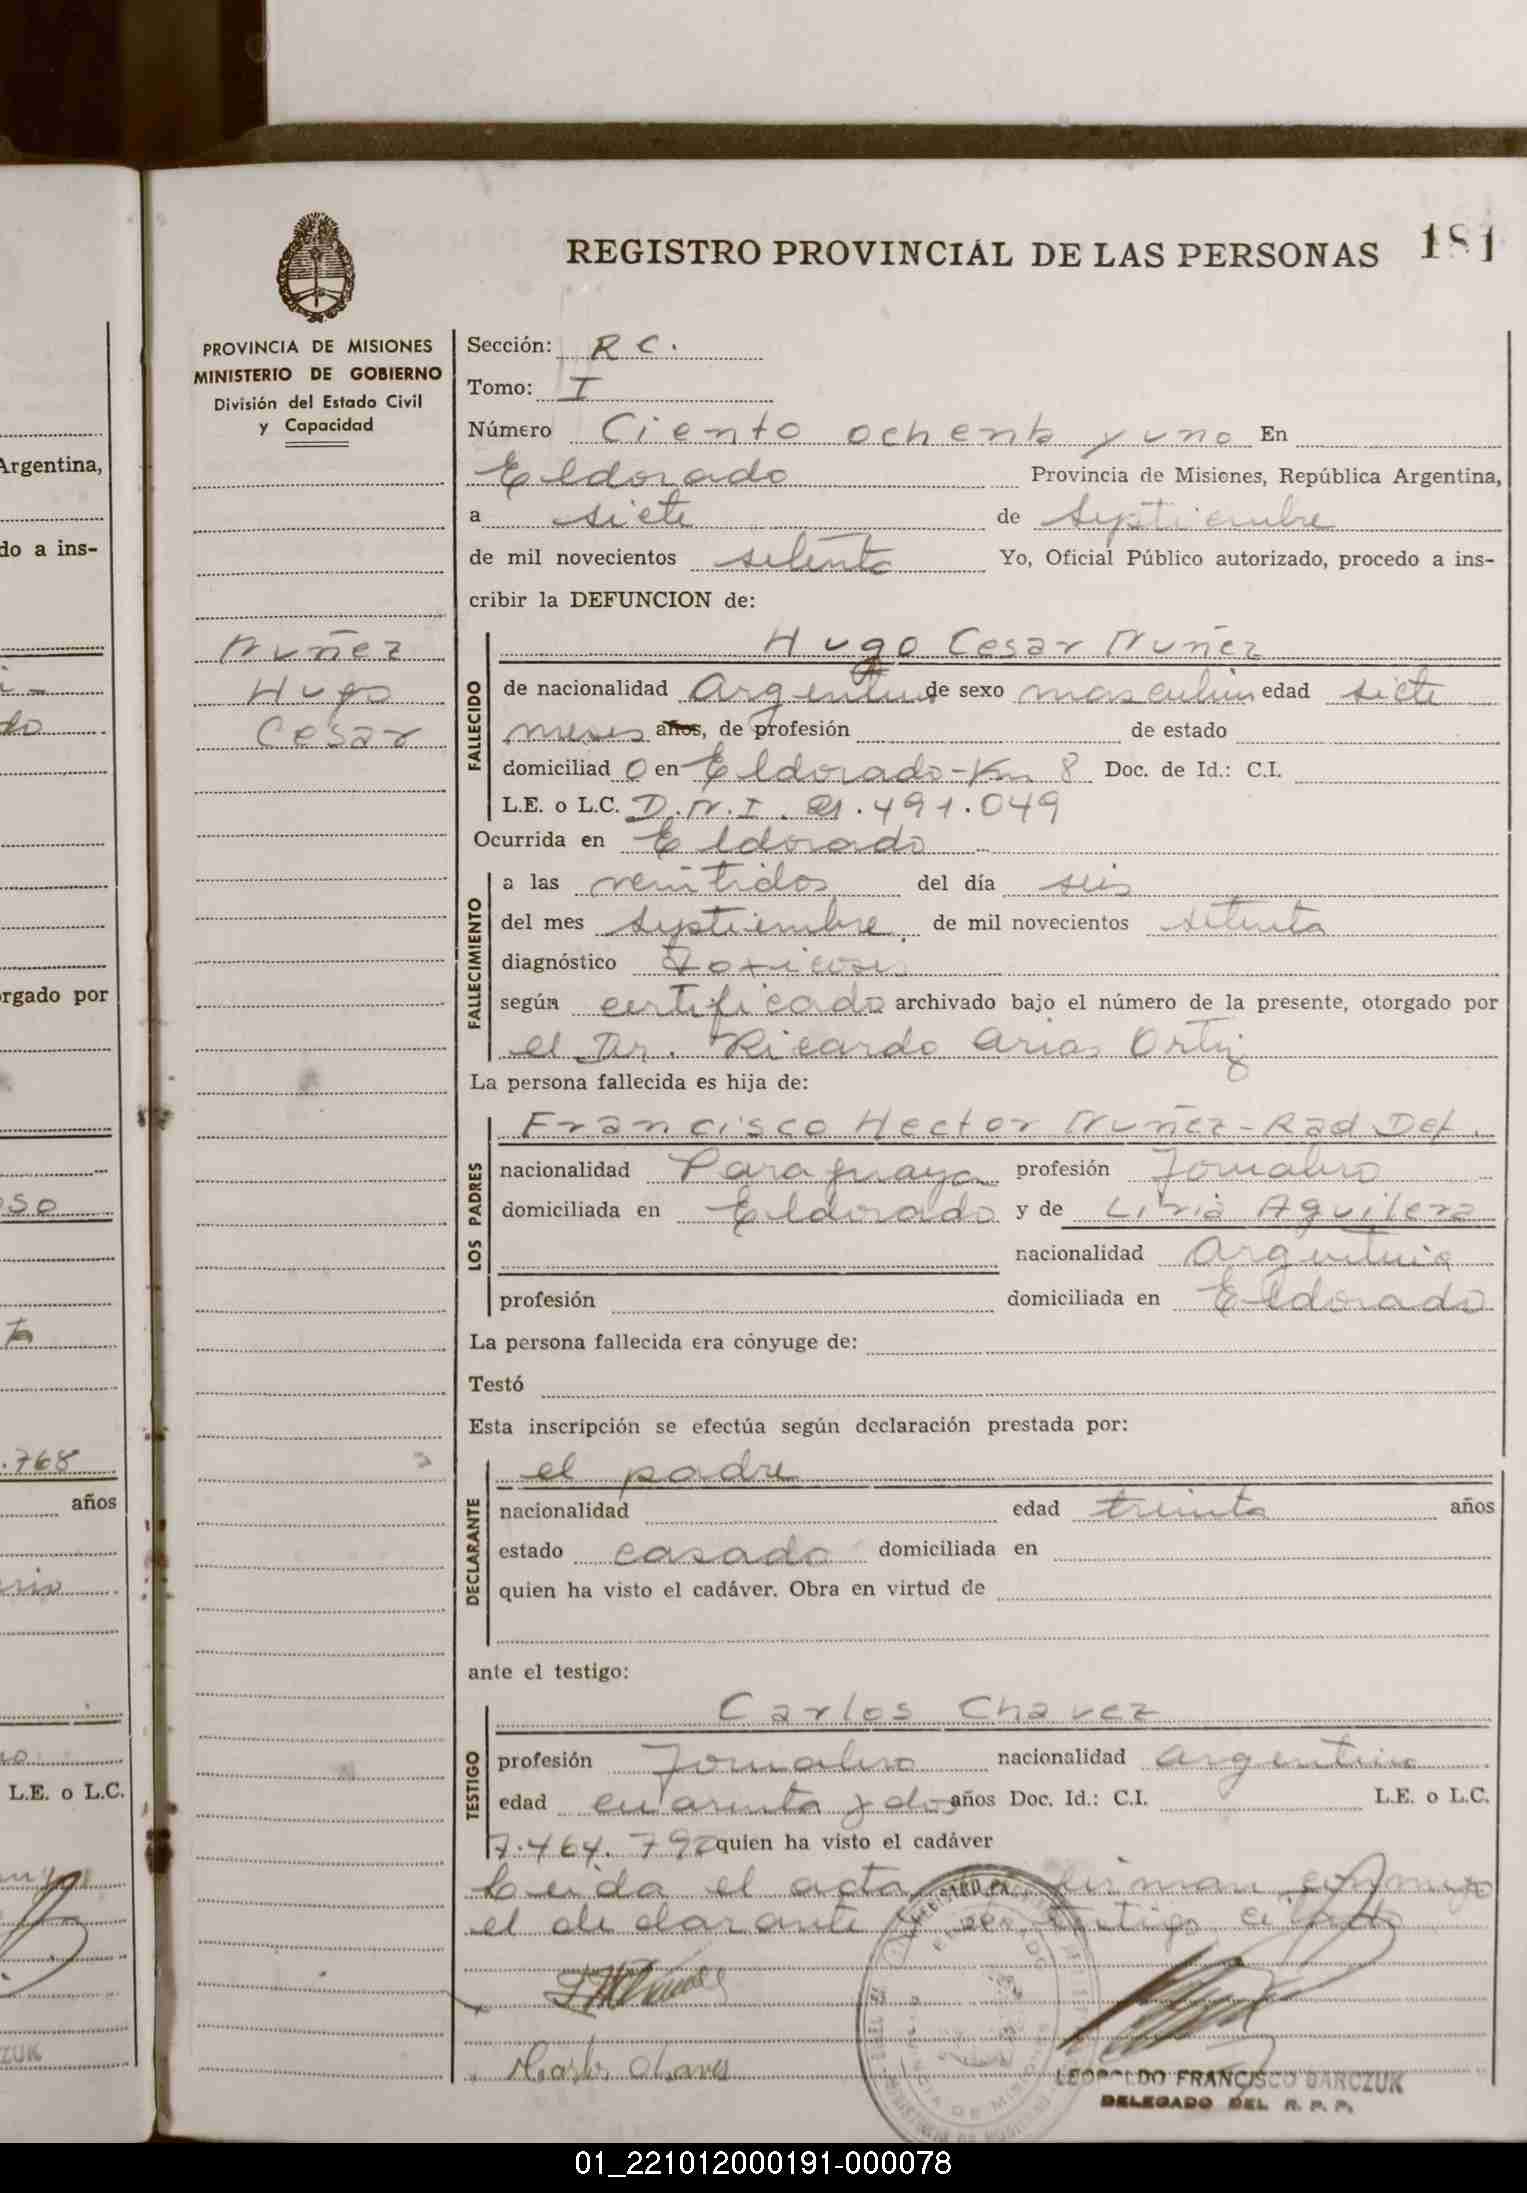 REGISTRO PROVINCIAL DE LAS PERSONAS 181
PROVINCIA DE MISIONES
MINISTERIO DE GOBIERNO
División del Estado Civil
y Capacidad
Nuñez
Hugo
Cesar
Sección: R C.
Tomo: I
Número Ciento ochenta y uno En
Eldorado Provincia de Misiones, República Argentina,
a siete de septiembre
de mil novecientos setenta Yo, Oficial Público autorizado, procedo a ins-
cribir la DEFUNCION de:
FALLECIDO
Hugo Cesar Nuñez
de nacionalidad Argentina de sexo masculino edad siete
meses años, de profesión de estado
domiciliado en Eldorado-Km 8 Doc. de Id.: C.I.
L.E. o L.C. D.N.I. 21.491.049
Ocurrida en Eldorado
FALLECIMIENTO
a las veintidos del día seis
del mes septiembre, de mil novecientos setenta
diagnóstico Toxicosis
según certificado archivado bajo el número de la presente, otorgado por
el Dr. Ricardo Arias Ortiz
La persona fallecida es hija de:
LOS PADRES
Francisco Hector Nuñez-Rad Def.
nacionalidad Paraguaya profesión Jornalero
domiciliada en Eldorado y de Livia Aguilera
nacionalidad Argentina
profesión domiciliada en Eldorado
La persona fallecida era cónyuge de:
Testó
Esta inscripción se efectúa según declaración prestada por:
DECLARANTE
el padre
nacionalidad edad treinta años
estado casado domiciliada en
quien ha visto el cadáver. Obra en virtud de
ante el testigo:
TESTIGO
Carlos Chavez
profesión Jornalero nacionalidad argentino
edad cuarenta y dos años Doc. Id.: C.I. L.E. o L.C.
7.464.792 quien ha visto el cadáver
Leida el acta firman conmigo
el declarante y testigo citado
Carlos Chaves
LEOPOLDO FRANCISCO DARCZUK
DELEGADO DEL R. P. P.
Argentina,
do a ins-
rgado por
oso
.768
años
L.E. o L.C.
ZUK
01_221012000191-000078